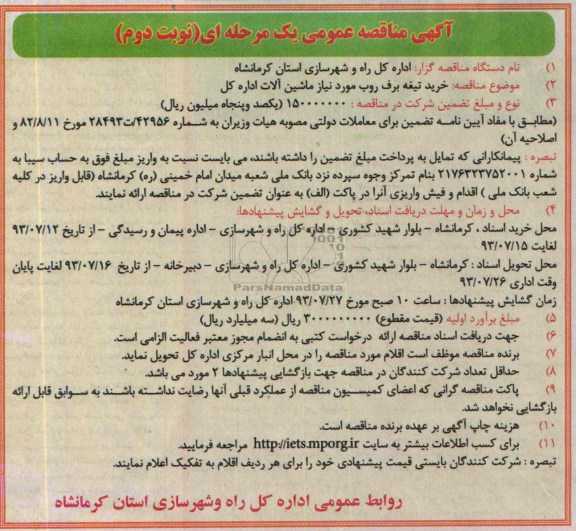 آگهی مناقصه عمومی یک مرحله ای(نوبت دوم)
۱) نام دستگاه مناقصه گزار: اداره کل راه و شهرسازی استان کرمانشاه
۲) موضوع مناقصه: خرید تیغه برف روب مورد نیاز ماشین آلات اداره کل
۳) نوع و مبلغ تضمین شرکت در مناقصه : ۱۵۰۰۰۰۰۰۰ (یکصد وپنجاه میلیون ریال)
(مطابق با مفاد آیین نامه تضمین برای معاملات دولتی مصوبه هیات وزیران به شماره ۴۲۹۵۶/ت۲۸۴۹۳ مورخ ۸۲/۸/۱۱ و
اصلاحیه آن)
تبصره : پیمانکارانی که تمایل به پرداخت مبلغ تضمین را داشته باشند، می بایست نسبت به واریز مبلغ فوق به حساب سیبا به
شماره ۲۱۷۶۳۲۳۷۵۲۰۰۱ بنام تمرکز وجوه سپرده نزد بانک ملی شعبه میدان امام خمینی (ره) کرمانشاه (قابل واریز در کلیه
شعب بانک ملی ) اقدام و فیش واریزی آنرا در پاکت (الف) به عنوان تضمین شرکت در مناقصه ارائه نمایند.
۴) محل و زمان و مهلت دریافت اسناد، تحویل و گشایش پیشنهادها:
محل خرید اسناد ، کرمانشاه - بلوار شهید کشوری - اداره کل راه و شهرسازی - اداره پیمان و رسیدگی - از تاریخ ۹۳/۰۷/۱۲
لغایت ۹۳/۰۷/۱۵
محل تحویل اسناد : کرمانشاه - بلوار شهید کشوری - اداره کل راه و شهرسازی - دبیرخانه - از تاریخ ۹۳/۰۷/۱۶ لغایت پایان
وقت اداری ۹۳/۰۷/۲۶
ParsNamadData
زمان گشایش پیشنهادها : ساعت ۱۰ صبح مورخ ۹۳/۰۷/۲۷ اداره کل راه و شهرسازی استان کرمانشاه
۵) مبلغ برآورد اولیه (قیمت مقطوع) ۳۰۰۰۰۰۰۰۰۰ ریال (سه میلیارد ریال)
۶) جهت دریافت اسناد مناقصه ارائه درخواست کتبی به انضمام مجوز معتبر فعالیت الزامی است.
۷) برنده مناقصه موظف است اقلام مورد مناقصه را در محل انبار مرکزی اداره کل تحویل نماید.
۸) حداقل تعداد شرکت کنندگان در مناقصه جهت بازگشایی پیشنهادها ۲ مورد می باشد.
۹) پاکت مناقصه گرانی که اعضای کمیسیون مناقصه از عملکرد قبلی آنها رضایت نداشته باشند به سوابق قابل ارائه
بازگشایی نخواهد شد.
۱۰) هزینه چاپ آگهی بر عهده برنده مناقصه است.
۱۱) برای کسب اطلاعات بیشتر به سایت http://iets.mporg.ir مراجعه فرمایید.
تبصره : شرکت کنندگان بایستی قیمت پیشنهادی خود را برای هر ردیف اقلام به تفکیک اعلام نمایند.
روابط عمومی اداره کل راه وشهرسازی استان کرمانشاه